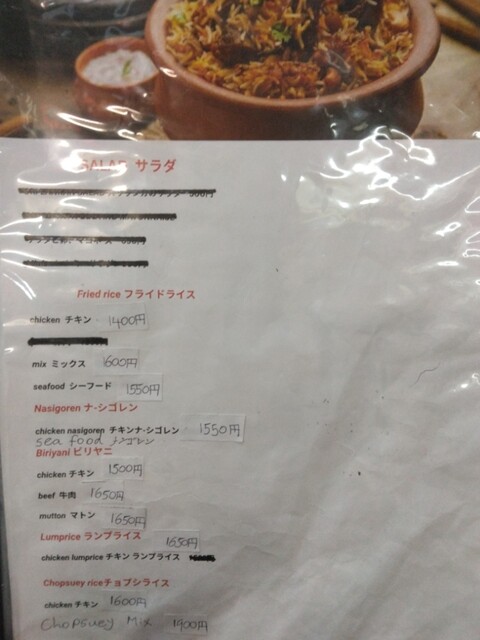 SALAD サラダ
Fried rice フライドライス
chicken チキン 1400円
mix ミックス 1600円
seafood シーフード 1550円
Nasigoren ナ-シゴレン
chicken nasigoren チキンナ-シゴレン 1550円
sea food ナシゴレン
Biriyani ビリヤニ
chicken チキン 1500円
beef 牛肉 1650円
mutton マトン 1650円
Lumprice ランプライス 1650円
chicken lumprice チキン ランプライス
Chopsuey riceチョプシライス
chicken チキン 1600円
Chopsuey Mix 1900円